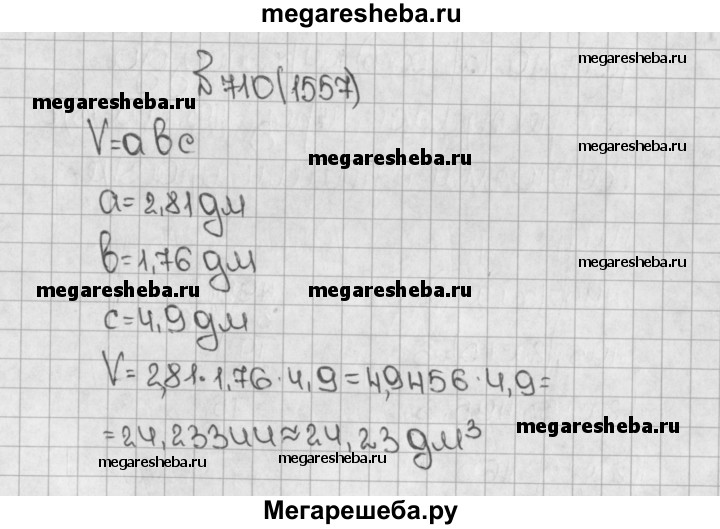 megaresheba.ru
megaresheba.ru
№710(1557)
megaresheba.ru
V=авс
megaresheba.ru
а=2,81дм
megaresheba.ru
в=1,76 дм
megaresheba.ru
megaresheba.ru
megaresheba.ru
с=4,9дм
V=2,81·1,76·4,9=4,9456·4,9=
=24,23344≈24,23дм³
megaresheba.ru
megaresheba.ru
megaresheba.ru
Мегарешеба.ру